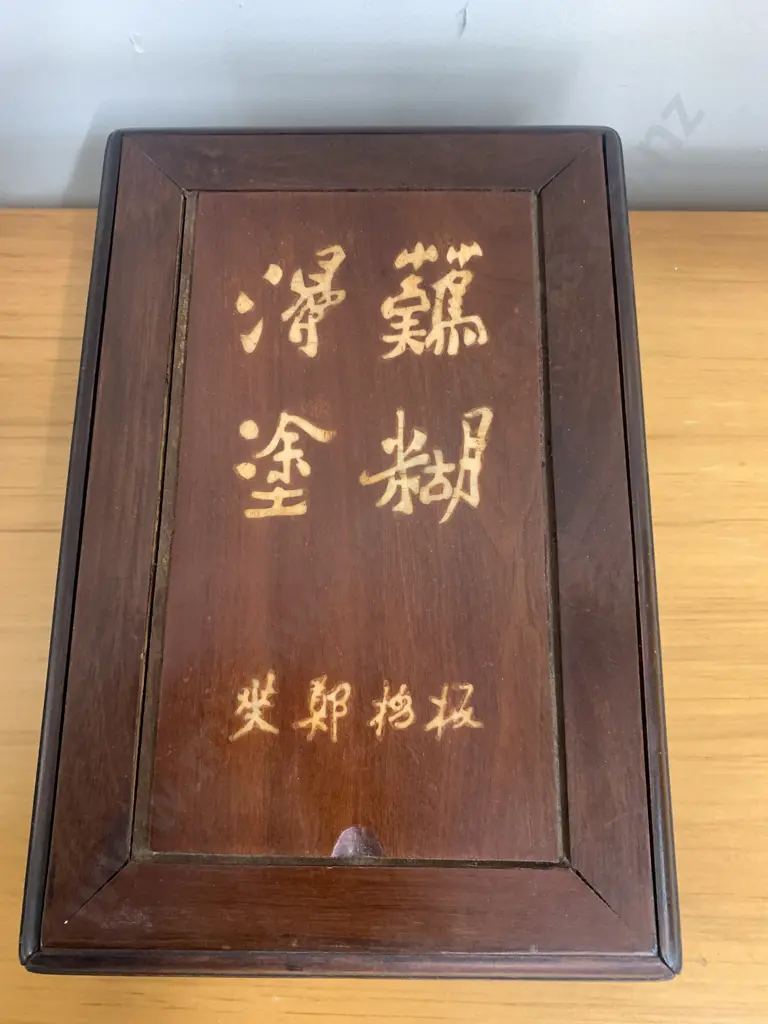 難得
糊塗
板橋鄭燮